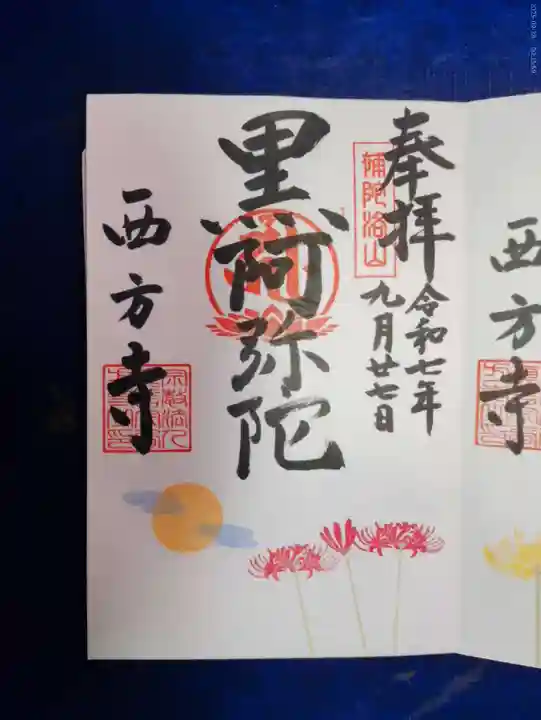 奉拝
補陀洛山
令和七年
九月廿七日
黒阿弥陀
西方寺
西方寺